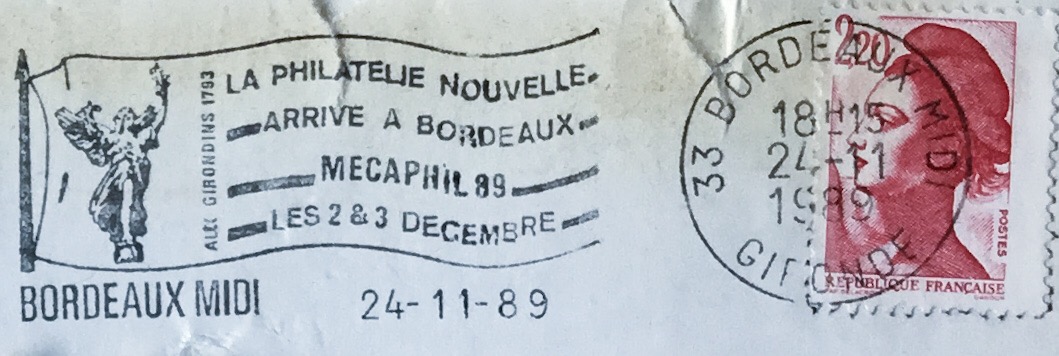 AUX GIRONDINS 1793
LA PHILATELIE NOUVELLE
ARRIVE A BORDEAUX
MECAPHIL 89
LES 2 & 3 DECEMBRE
BORDEAUX MIDI
24-11-89
33 BORDEAUX MIDI
18H15
24-11
1989
GIRONDE
2,20
POSTES
RÉPUBLIQUE FRANÇAISE